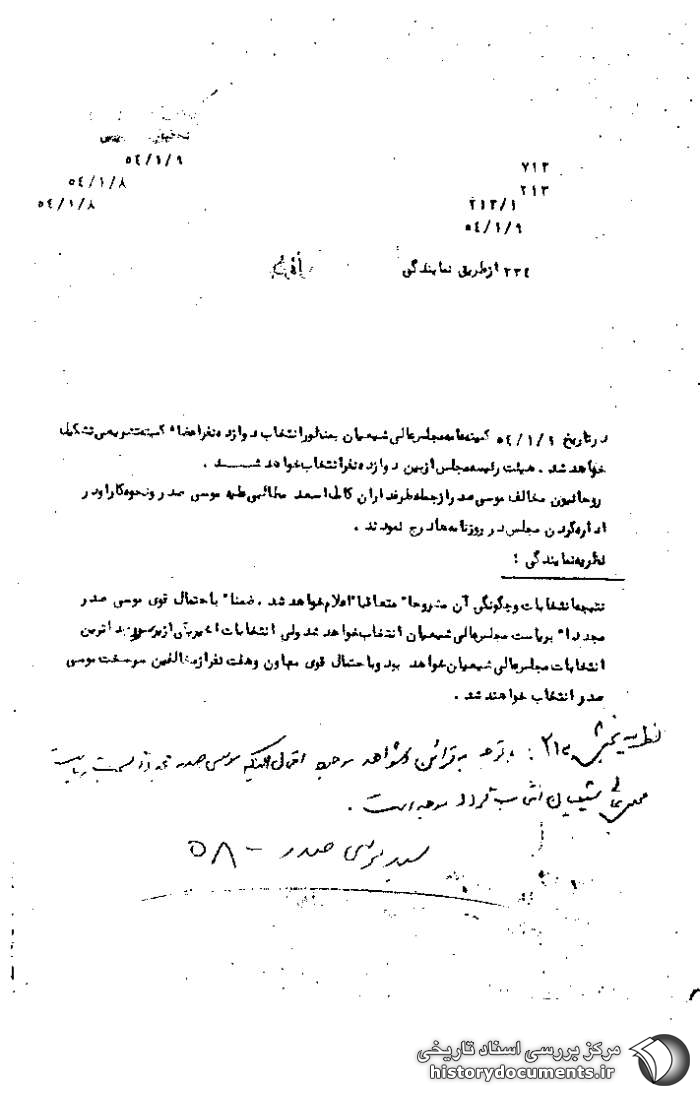 ۵٤/۱/۹
۷۱۳
۵٤/۱/۸
۲۱۳
۵٤/۱/۸
۲۱۳/۱
۵٤/۱/۹
۲۳٤ ازطریق نمایندگی
درتاریخ ۵٤/۱/۹ کمیته عامه مجلس عالی شیعیان بمنظورانتخاب دوازده نفراعضاء کمیته تشکیل
خواهد شد . هیئت رئیسه مجلس ازبین دوازده نفرانتخاب خواهد شد .
روحانیون مخالف موسی صدر ازجمله طرفداران کامل اسعد مطالبی علیه موسی صدر ونحوه کار او در
اداره کردن مجلس در روزنامه ها درج نمودند .
نظریه نمایندگی :
نتیجه انتخابات وچگونگی آن مشروحا" متعاقبا" اعلام خواهد شد . ضمنا" با حتمال قوی موسی صدر
مجددا" بریاست مجلس عالی شیعیان انتخاب خواهد شد ولی انتخابات اخیر یکی از
انتخابات مجلس عالی شیعیان خواهد بود وباحتمال قوی معاون وهفت نفرازمخالفین سرسخت موسی
صدر انتخاب خواهند شد .
نظریه بخش ۲۱۳ : باتوجه به قرائن وشواهد موجود احتمال اینکه موسی صدر مجددا بسمت ریاست
مجلس عالی شیعیان انتخاب گردد موجه است .
سید موسی صدر - ۵۸
مرکز بررسی اسناد تاریخی
historydocuments.ir